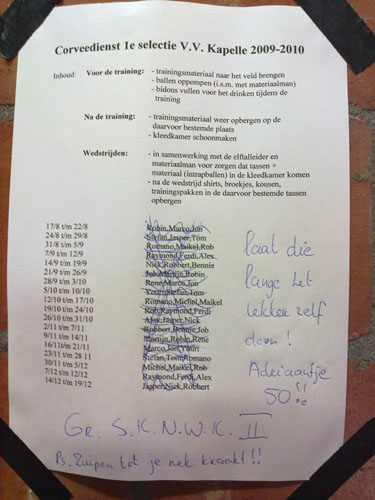 Corveedienst 1e selectie V.V. Kapelle 2009-2010
Inhoud: Voor de training: - trainingsmateriaal naar het veld brengen
- ballen oppompen (i.s.m. met materiaalman)
- bidons vullen voor het drinken tijdens de
training
Na de training: - trainingsmateriaal weer opbergen op de
daarvoor bestemde plaats
- kleedkamer schoonmaken
Wedstrijden: - in samenwerking met de elftalleider en
materiaalman voor zorgen dat tassen +
materiaal (intrapballen) in de kleedkamer komen
- na de wedstrijd shirts, broekjes, kousen,
trainingspakken in de daarvoor bestemde tassen
opbergen
17/8 t/m 22/8 Robin,Marco,Jon
24/8 t/m 29/8 Stefan,Jasper,Tom
31/8 t/m 5/9 Romano,Maikel,Rob
7/9 t/m 12/9 Raymond,Ferdi,Alex
14/9 t/m 19/9 Nick,Robbert,Bennie
21/9 t/m 26/9 Job,Martijn,Robin
28/9 t/m 3/10 Rene,Marco,Jon
5/10 t/m 10/10 Youri,Stefan,Tom
12/10 t/m 17/10 Romano,Michel,Maikel
19/10 t/m 24/10 Rob,Raymond,Ferdi
26/10 t/m 31/10 Alex,Jasper,Nick
2/11 t/m 7/11 Robbert,Bennie,Job
9/11 t/m 14/11 Martijn,Robin,Rene
16/11 t/m 21/11 Marco,Jon,Youri
23/11 t/m 28 11 Stefan,Tom,Romano
30/11 t/m 5/12 Michel,Maikel,Rob
7/12 t/m 12/12 Raymond,Ferdi,Alex
14/12 t/m 19/12 Jasper,Nick,Robbert
laat die
lange het
lekker zelf
doen!
Adriaantje
50!!
Gr. S.K.N.W.K. II
Ps. Zuipen tot je nek kraakt!!